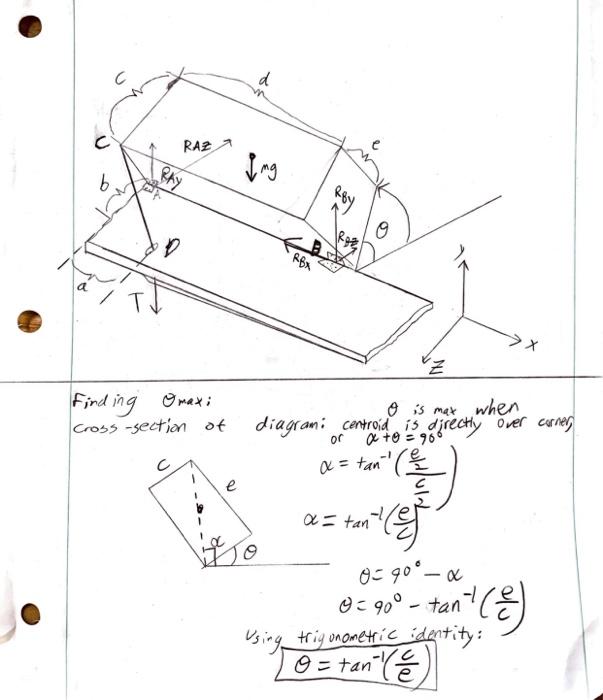 c
d
e
C
RAZ
mg
RAy
b
A
RBy
θ
RBZ
B
RBx
D
a
T
y
x
Z
Finding θmax:
θ is max when
cross-section of diagram: centroid is directly over corner,
or α+θ=90°
α = tan⁻¹((e/2)/(c/2))
c
e
α = tan⁻¹(e/c)
α
θ
θ = 90° - α
θ = 90° - tan⁻¹(e/c)
Using trigonometric identity:
θ = tan⁻¹(c/e)